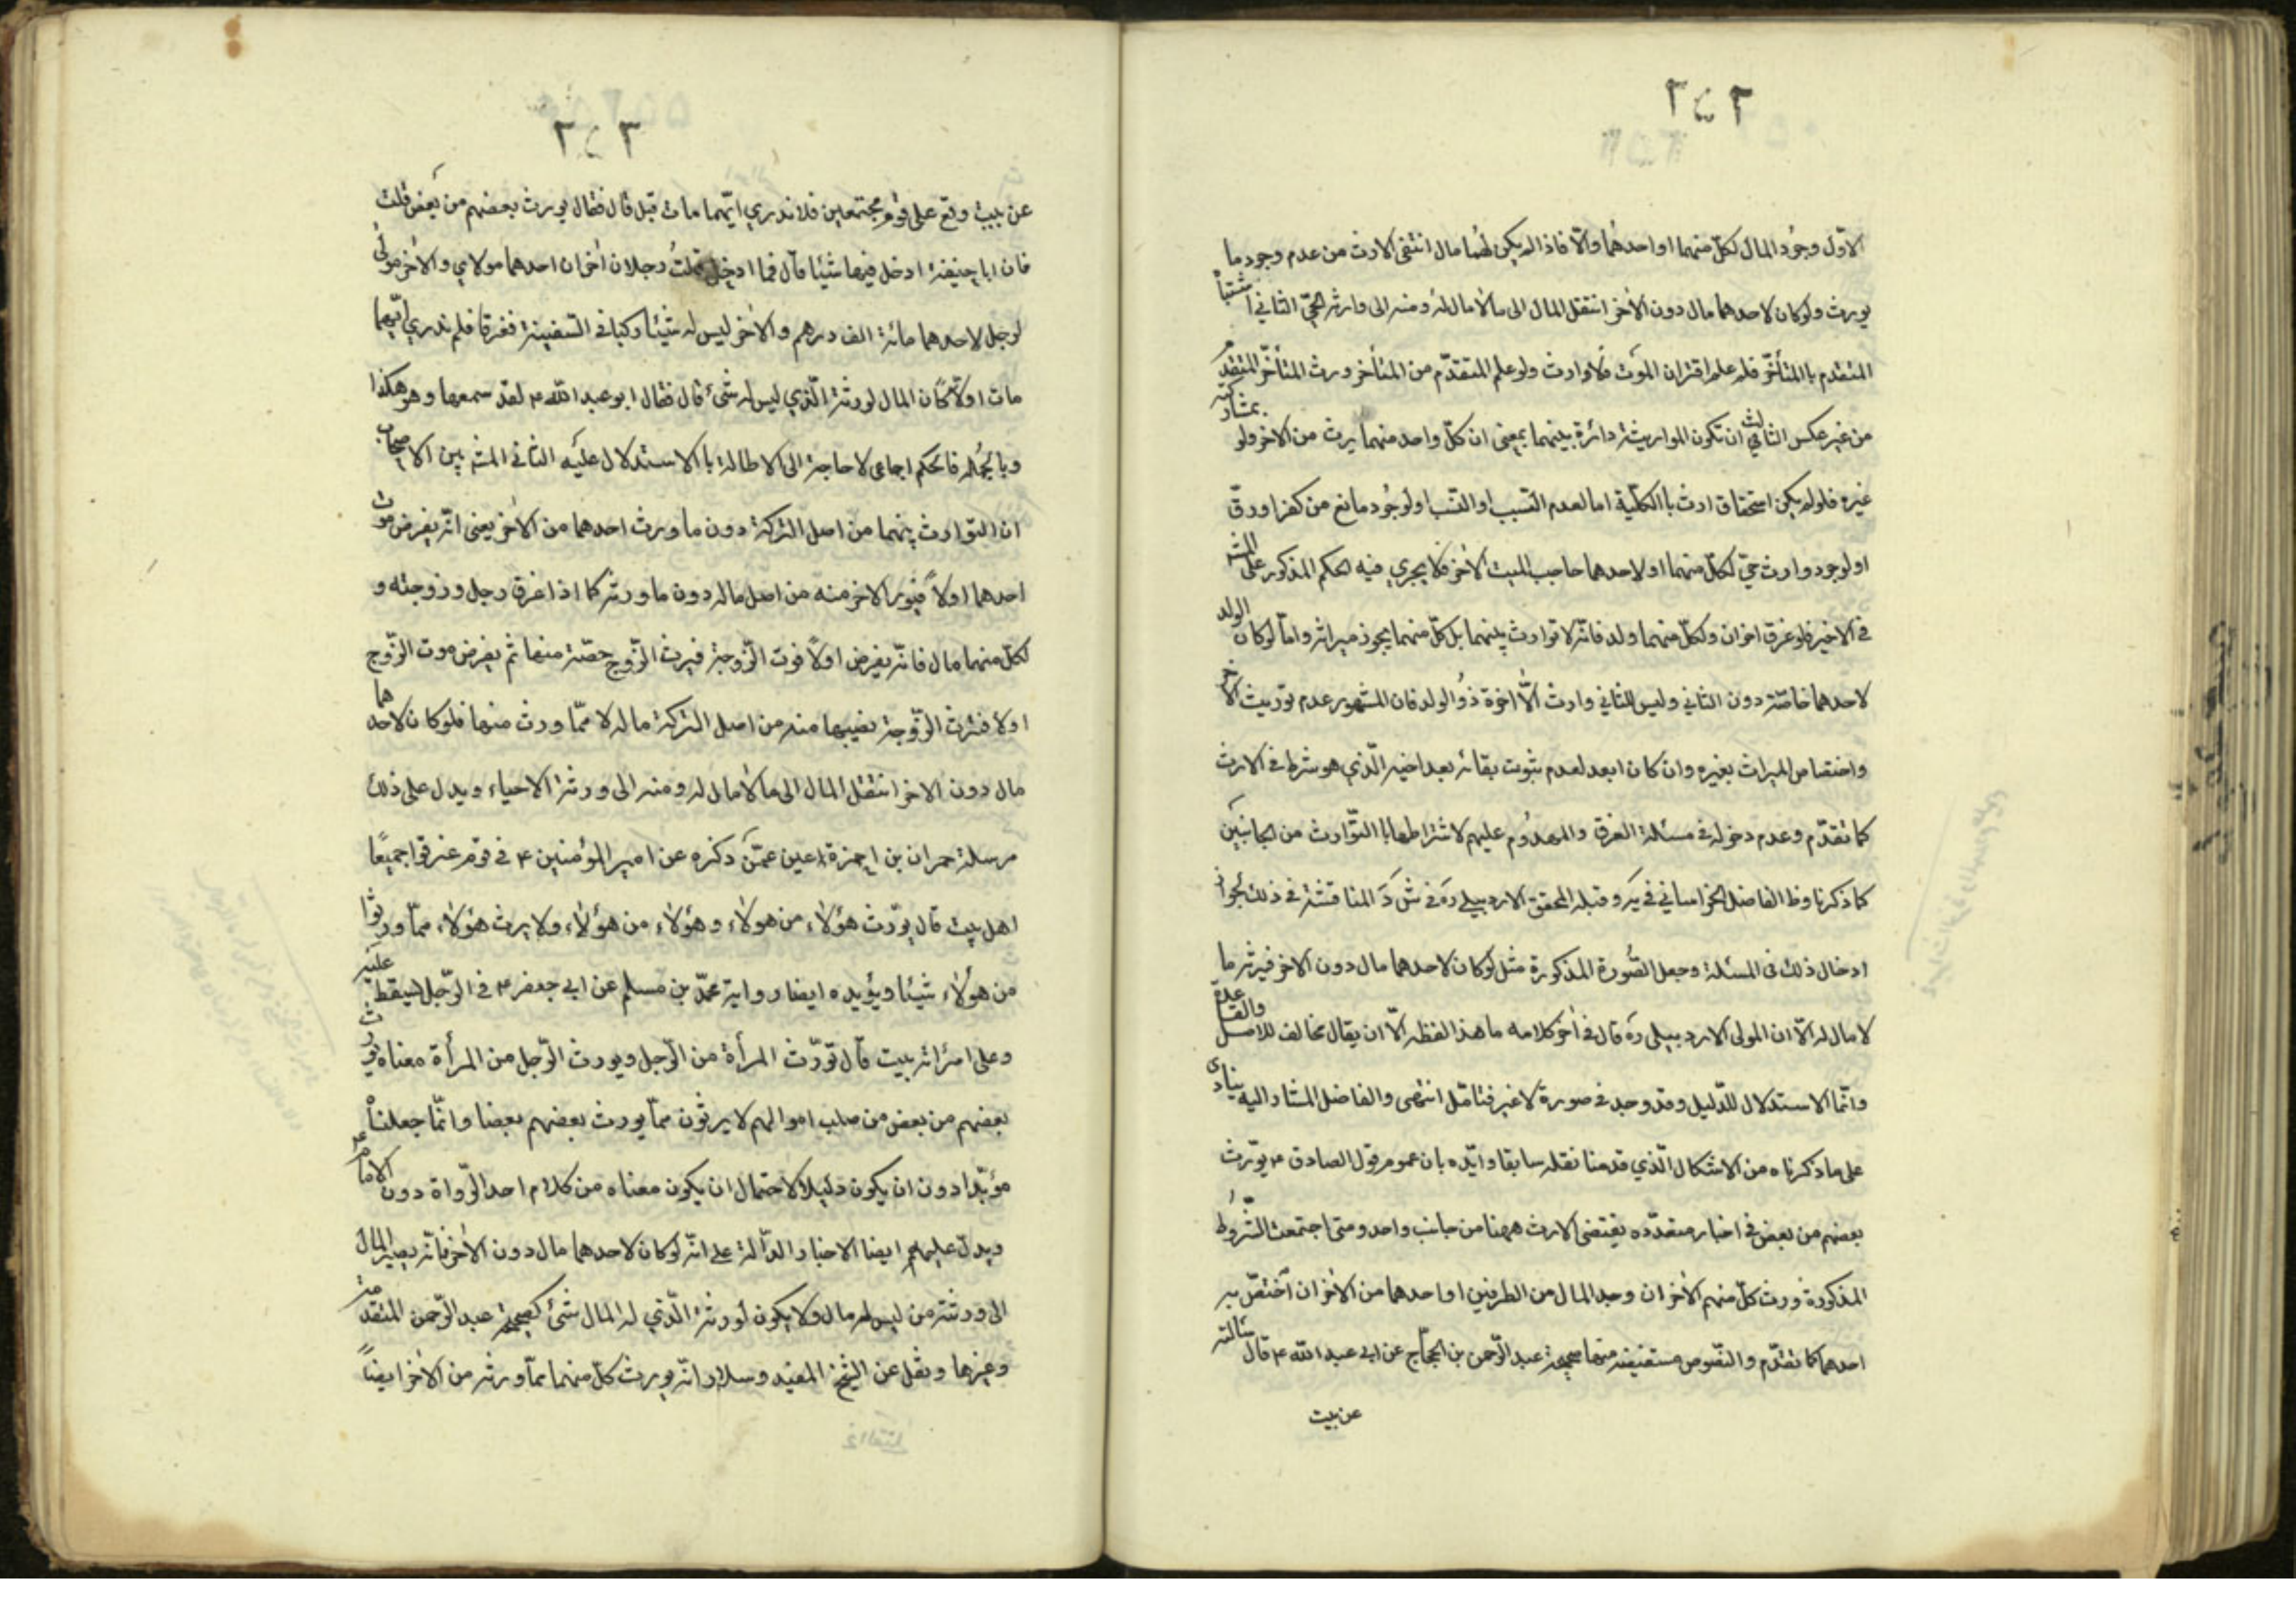 ٢٥٢
الاوّل وجُود المال لكلّ منهما او احدهُما والّا فاذا لم يكن لهُما مال انتفى الارث من عدم وجود ما
يورث ولو كان لاحدهما مال دون الاٰخر انتقل المال الى مالامال لهُ ومنه الى وارثه الحيّ الثاني اشتباهْ
المتقدم باالمتأخّر فلو علم اقتران الموت فلا وارث ولو علم المتقدّم من المتأخر ورث المتأخّر المتقدم
من غير عكس الثالث ان تكون الموارثة دائرة بينهما بمعنى ان كلّ واحد منهما يرث من الاخر ولو بمشاركة
غيره فلو لم يكن استحقاق ارث باالكلّية اما لعدم النّسب او السّبب او لوجُود مانع من كفر او رقّ
او لوجود وارث حيّ لكلّ منهما او لاحدهما حاجب للميت الاٰخر فلا يجري فيه الحكم المذكور على المش
فى الاخير فلو غرق اخوان ولكلّ منهما ولد فانّه لا توارث بينهما بل كلّ منهما يحوز ميراثه وامّا لو كان الولد
لاحدهما خاصّة دون الثاني وليس للثاني وارث الّا اخوة ذُو الولد فان المشهور عدم توريث الاخ
واختصاص الميراث بغيره وان كان ابعد لعدم ثبوت بقائه بعد اخيه الّذي هو شرط فى الارث
كما تقدّم وعدم دخوله فى مسئلة الغرق والمهدُوم عليهم لاشتراطها باالتّوارث من الجانبَين
كما ذكرنا وظ الفاضل الخراساني فى يَه وقبله المحقق الاردبيلي ره فى شَ دَ المناقشة فى ذلك بجواز
ادخال ذلك فى المسئلة وجعل الصُّورة المذكورة مثل لو كان لاحدهما مال دون الاخر فيرثه ما
لا مال له الّا ان المولى الاردبيلى ره قال فى اٰخر كلامه ما هذا لفظه الّا ان يقال مخالف للاصل والقاعدة
وانّما الاستدلال للدّليل وقد وجد فى صورة لا غير فتامّل انتهى والفاضل المشار اليه ينادى
على ما ذكرناه من الاشكال الّذي قدمنا نقله سابقا وايّده بان عموم قول الصادق ع يورّث
بعضهم من بعض فى اخبار متعدّده يقتضى الارث ههنا من جانب واحد ومتى اجتمعت الشّروط
المذكورة ورث كلّ منهم الاٰخر ان وجد المال من الطرفين او احدهما من الاٰخر ان اختصّ به
احدهما كما تقدّم والنّصوص مستفيضة منها صحيحة عبد الرّحمن بن الحجّاج عن ابي عبد اللّه ع قال سئالته
عن بيت
٢٥٣
عن بيت وقع على قوم مجتمعين فلا ندري ايّهما مات قبل قال فقال يورث بعضهم من بعض قلت
فان ابا حنيفة ادخل فيها شيئا قال فما ادخل قلتُ رجلان اخوان احدهما مولاي والاٰخر مولى
لرجل لاحدهما مائة الف درهم والاخر ليس له شيئا ركبا فى السّفينة فغرقا فلم ندري ايّهما
مات اولًا كان المال لورثة الّذي ليس له شئ قال فقال ابو عبد اللّه ع لقد سمعها وهو هكذا
وباالجُمله فاالحكم اجماعى لا حاجة الى الاطالة باالاستدلال عليه الثانى المش بين الاصحاب
ان التوارث بينهما من اصل التركة دون ما ورث احدهما من الاٰخر يعنى انّه يفرض موت
احدهما اولاً فيورث الاخر منه من اصل ماله دون ما ورثه كما اذا غرق رجل وزوجته و
لكلّ منهما مال فانّه يفرض اولاً فوت الزّوجة فيرث الزّوج حصّته منها ثم يفرض موت الزّوج
اولا فترث الزّوجة نصيبها منه من اصل التركة ماله لا ممّا ورث منها فلو كان لاحدهما
مال دون الاخر انتقل المال الى مالامال له ومنه الى ورثة الاحياء ويدل على ذلك
مرسلة حمران بن اعين عمّن ذكره عن امير المؤمنين ع فى قوم غرقوا جميعًا
اهل بيت قال يورّث هؤلاء من هولاء وهؤلاء من هؤلاء ولا يرث هؤلاء ممّا ورثوا
من هؤلاء شيئا ويؤيده ايضا رواية محمّد بن مسلم عن ابي جعفر ع فى الرّجل يسقط عليه
وعلى امرائه بيت قال تورّث المرأة من الرّجل ويورث الرّجل من المرأة معناه يورث
بعضهم من بعض من صلب اموالهم لا يرثون ممّا يورث بعضهم بعضا وانّما جعلناْ
مؤيّدا دون ان يكون دليلا لاحتمال ان يكون معناه من كلام احد الرّواة دون الامام ع
ويدلّ عليهم ايضا الاخبار الدّالة على انّه لو كان لاحدهما مال دون الاٰخر فانّه يصير المال
الى ورثة من ليس له مال ولا يكون لورثة الّذي له المال شئ كصحيحة عبد الرّحمن المتقدمة
وغيرها ونقل عن الشّيخ المفيد وسلار انّه يورث كلّ منهما ممّا ورثه من الاٰخر ايضاً